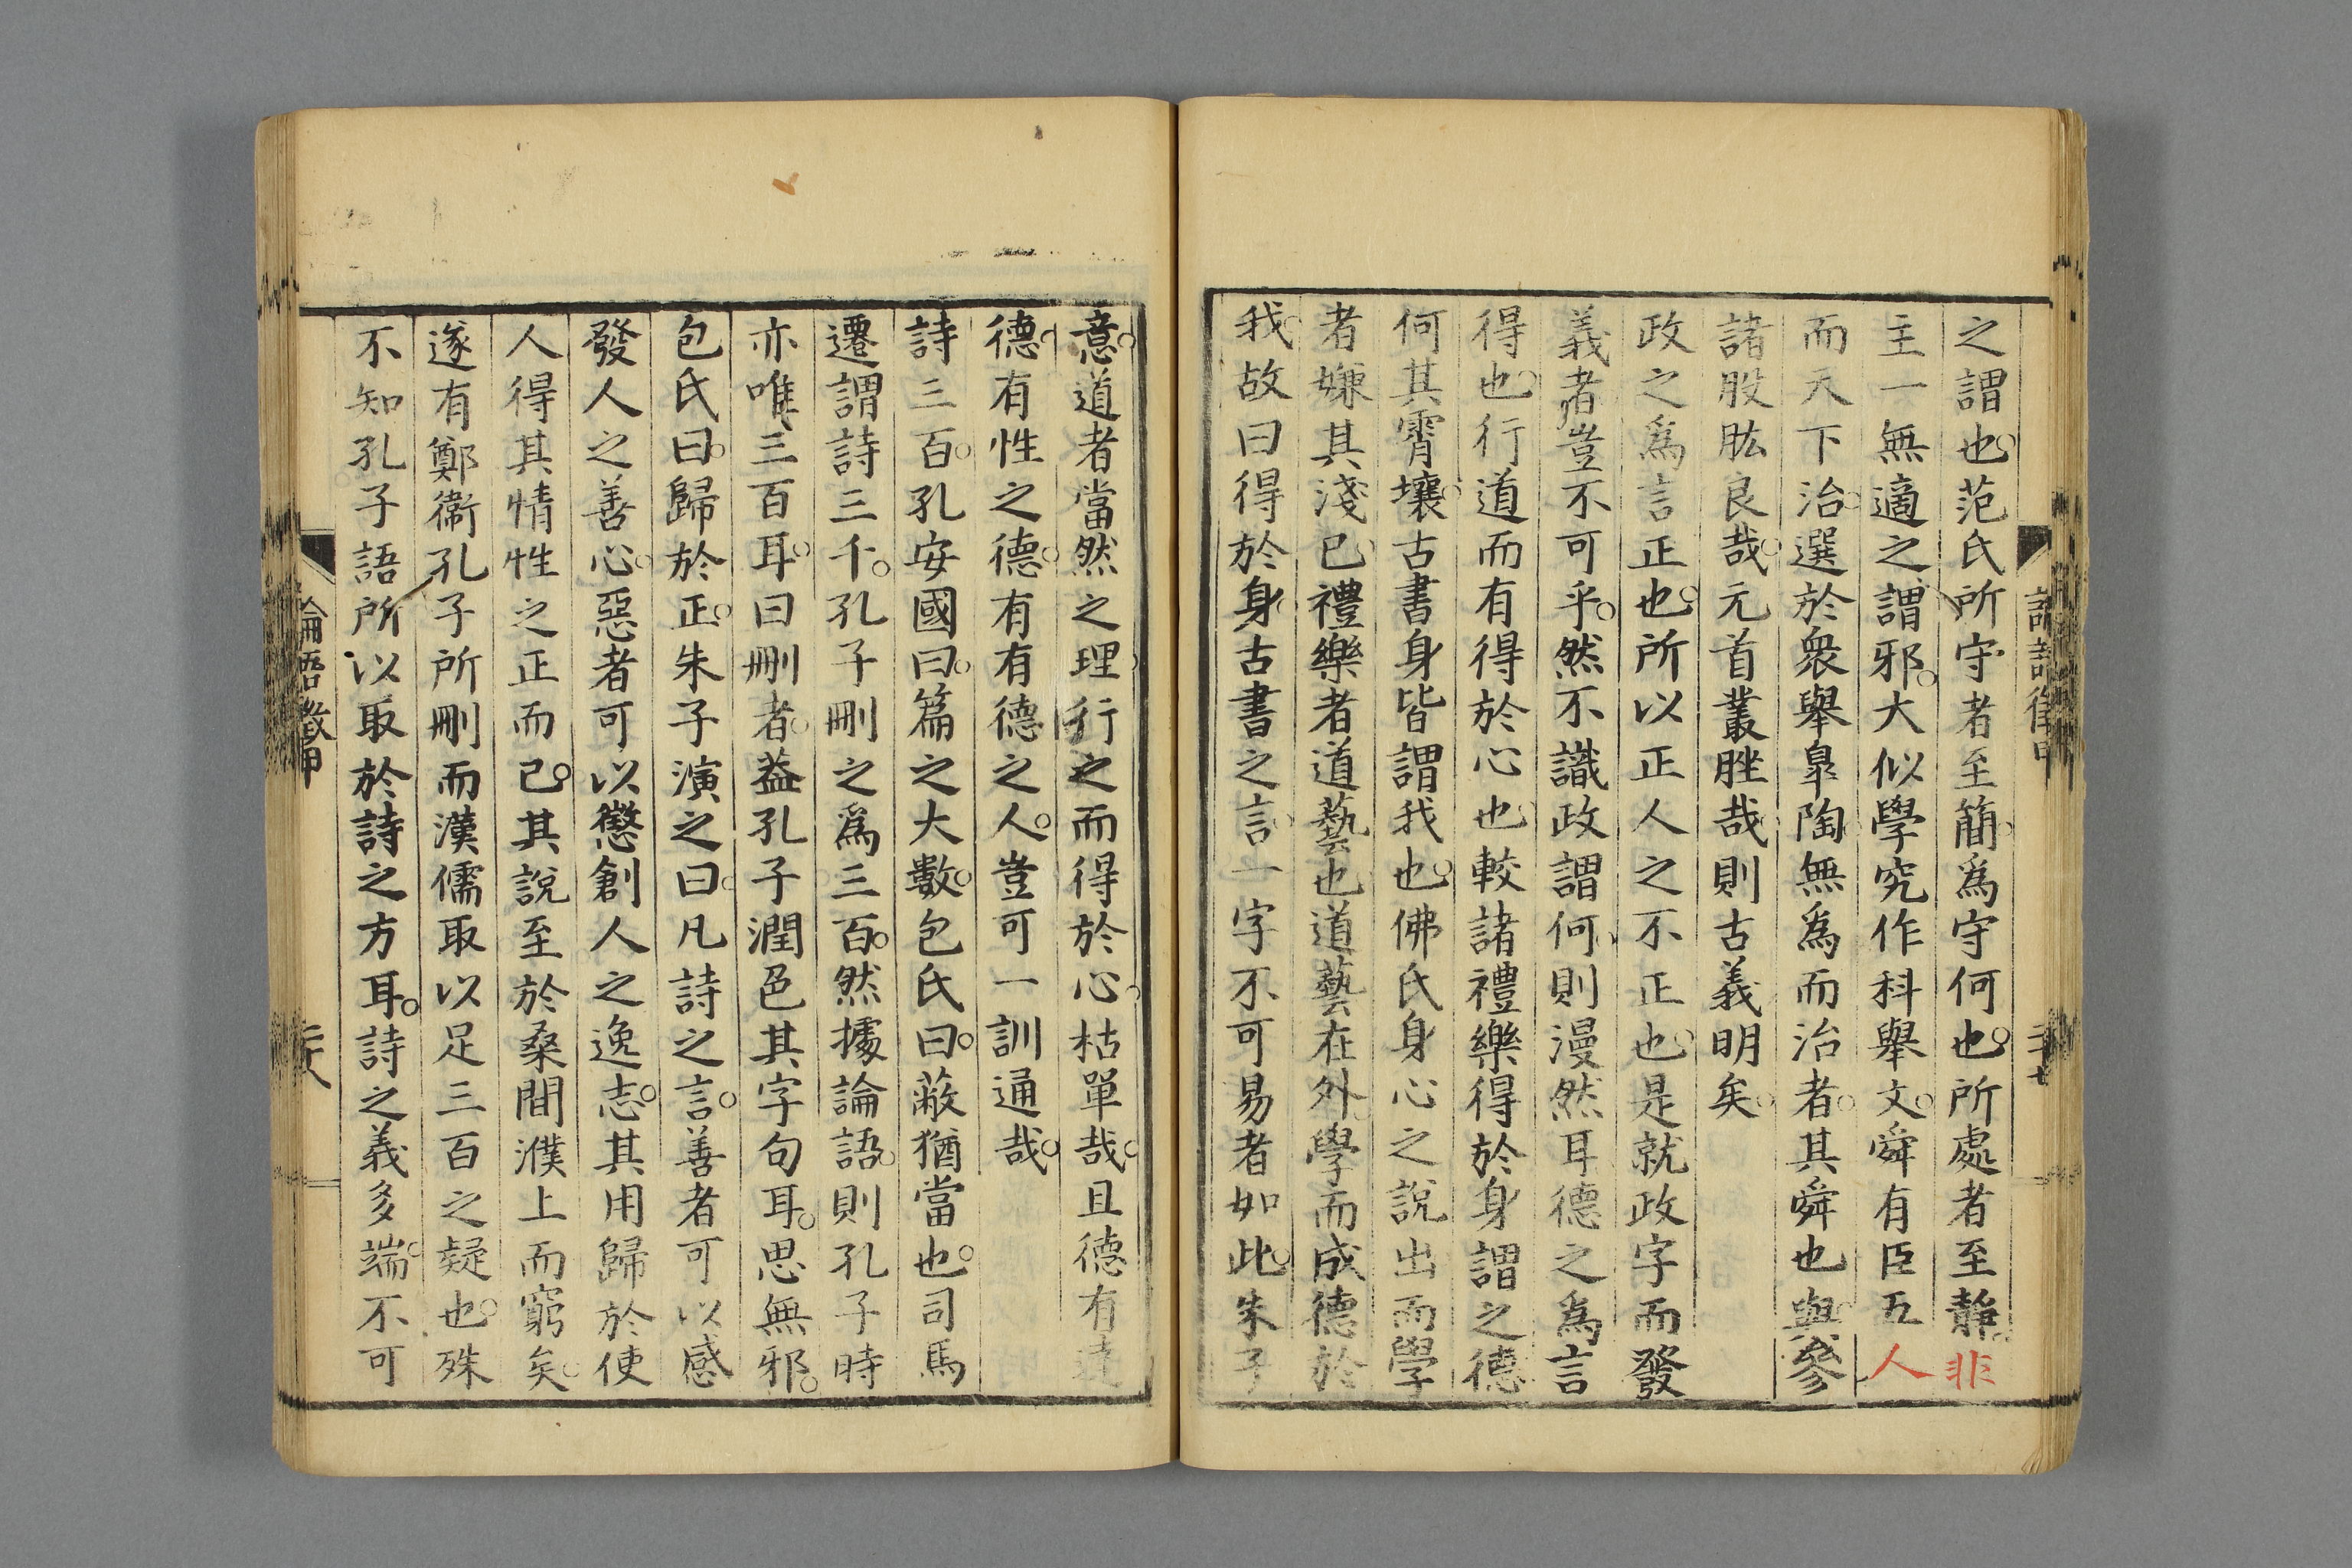 之謂也范氏所守者至簡爲守何也所處者至靜非
主一無適之謂邪大似學究作科舉文舜有臣五人
而天下治選於衆舉皐陶無爲而治者其舜也與參
諸股肱良哉元首叢脞哉則古義明矣
政之爲言正也所以正人之不正也是就政字而發
義者豈不可乎然不識政謂何則漫然耳德之爲言
得也行道而有得於心也較諸禮樂得於身謂之德
何其霄壤古書身皆謂我也佛氏身心之說出而學
者嫌其淺已禮樂者道藝也道藝在外學而成德於
我故曰得於身古書之言一字不可易者如此朱子
意道者當然之理行之而得於心枯單哉且德有達
德有性之德有有德之人豈可一訓通哉
詩三百孔安國曰篇之大數包氏曰蔽猶當也司馬
遷謂詩三千孔子刪之爲三百然據論語則孔子時
亦唯三百耳曰刪者葢孔子潤色其字句耳思無邪
包氏曰歸於正朱子演之曰凡詩之言善者可以感
發人之善心惡者可以懲創人之逸志其用歸於使
人得其情性之正而已其說至於桑間濮上而窮矣
遂有鄭衞孔子所刪而漢儒取以足三百之疑也殊
不知孔子語所以取於詩之方耳詩之義多端不可
論語徵甲